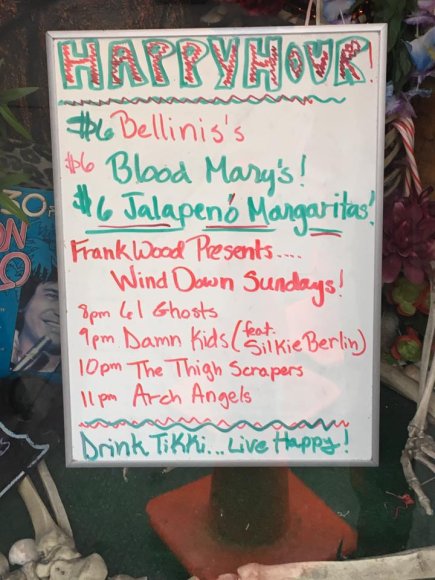 HAPPY HOUR!
$6 Bellinis's
$6 Blood Mary's!
$6 Jalapenó Margaritas!
Frank Wood Presents....
Wind Down Sundays!
8pm 61 Ghosts
9pm Damn Kids (feat. Silkie Berlin)
10pm The Thigh Scrapers
11pm Arch Angels
Drink Tikki... Live Happy!